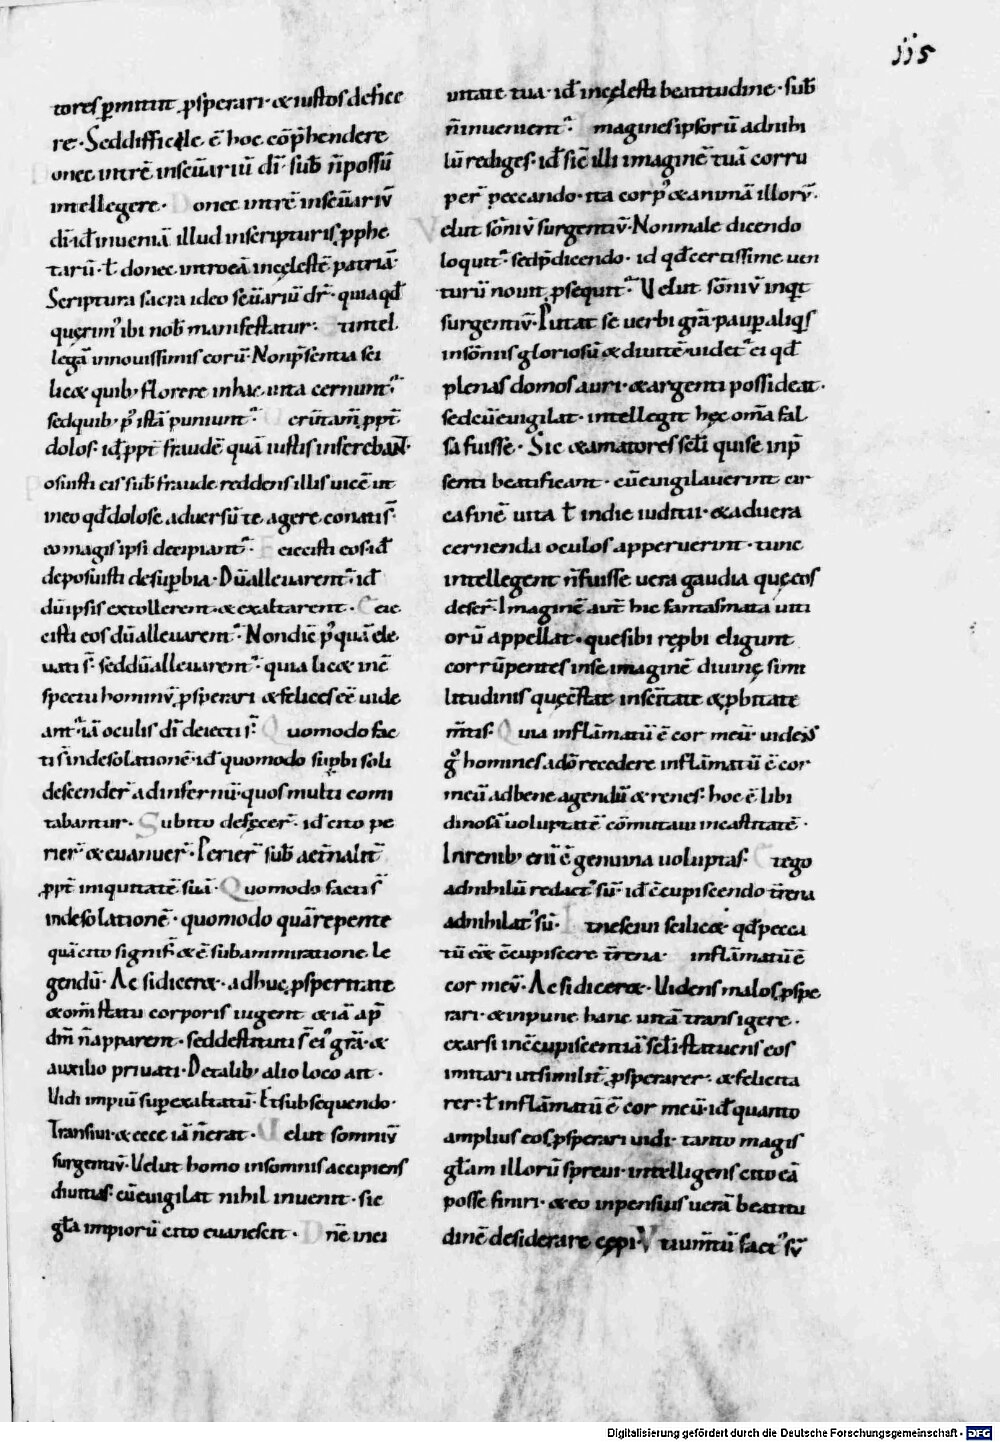 jj5
tores p̄mittit ꝓsperari· & iustos defice
re· Sed difficile ē hoc cōp̄hendere
onec intrē in sc̄uariū dī· sub̄ n̄ possū
intellegere· Donec intrē in sc̄uariū
dī· id̄ inueniā illud in scripturis ꝓphe
tarū· ł donec introeā in cęlestē patriā·
Scriptura sacra ideo sc̄uariū dr̄· quia qd̄
quęrim᾽ ibi nob̄ manifestatur· Et intel
legā in nouissimis eorū· Non p̄sentia sci
lic& quib; florere in hac uita cernunt᾽
sed quib; p᾽ istā puniunt᾽· Verūtam̄ ppt̄
dolos· id̄ ppt̄ fraudē quā iustis inferebant
osuisti eis sub̄ fraude reddens illis uicē ut
in eo qd̄ dolose aduersū te agere conati s̄
eo magis ipsi decipiant᾽· Eiecisti eos id̄
deposuisti de suꝑbia· Dū alleuarent᾽ id̄
dū ipsi se extollerent & exaltarent· Eie
cisti eos dū alleuarent᾽· Non diē p᾽quā ele
uati s̄· sed dū alleuarent᾽· quia lic& in c̄
spectu hominū ꝓsperari & felices eē uide
ant᾽ iā oculis dī deiecti s̄· Quomodo fac
ti s̄ in desolationē· id̄ quomodo suꝑbi soli
descender̄ ad infernū· quos multi comi
tabantur· Subito defęcer̄· id̄ cito pe
rier̄ & euanuer̄· Perier̄ sub̄ aet̄nalit̄
ppt̄ iniquitatē suā· Quomodo facti s̄
in desolationē· quomodo quā repente
quā cito signif̄· & ē sub ammiratione le
gendū· Ac si dicer&· adhuc ꝓsperitate
& om̄i statu corporis uigent & iā ap̄
dm̄ n̄ apparent· sed destituti s̄ ei᾽ grā· &
auxilio priuati· De talib; alio loco ait·
Vidi impiū suꝑexaltatū· Et subsequendo·
Transiui· & ecce iā n̄ erat· Velut somniū
surgentiū· Velut homo in somnis accipiens
diuitias· cū euigilat nihil inuenit· sic
gła impiorū cito euanescit· Dn̄e in ci
uitate tua· id̄ in cęlesti beatitudine· sub̄
n̄ inuenient᾽· Imagines ipsorū ad nihi
lū rediges· id̄ sic̄ illi imaginē tuā corru
per̄ peccando· ita corp᾽ & animā illorū·
Velut sōniū surgentiū· Non male dicendo
loquit᾽· sed p̄dicendo· id qd̄ certissime uen
turū nouit ꝓsequit᾽· Velut sōniū inqt
surgentiū· Putat se uerbi grā· pauꝑ aliqs
in sōnis gloriosū & diuitē· uidet᾽ ei qd̄
plenas domos auri· & argenti possideat·
sed cū euigilat· intellegit hęc om̄a fal
sa fuisse· Sic & amatores scłi qui se in p̄
senti beatificant· cū euigilauerint cir
ca finē uitę ł in die iudicii· & ad uera
cernenda oculos apperuerint· tunc
intellegent n̄ fuisse uera gaudia quę eos
deser̄· Imaginē aut̄ hic fantasmata uiti
orū appellat· que sibi rep̄bi eligunt
corrūpentes in se imaginē diuinę simi
litudinis quę c̄stat in sc̄itate & ꝓbitate
m̄tis· Quia inflāmatū ē cor meū· uideis
g᾽ homines a do recedere inflāmatū ē cor
meū ad bene agendū & renes· hoc ē libi
dinosā uoluptatē cōmutaui in castitatē·
In renib; eni ē genuina uoluptas· Et ego
ad nihilū redact᾽ sū· id̄ c̄cupiscendo t̄rena
adnihilat᾽ sū· Et nesciui scilic& qd̄ pecca
tū eē& c̄cupiscere t̄rena· inflāmatū ē
cor meū· Ac si dicer&· Videns malos ꝓspe
rari· & inpune hanc uitā transigere·
exarsi in c̄cupiscentiā scłi statuens eos
imitari ut similit̄ ꝓsperarer· & felicita
rer· ł inflāmatū ē cor meū· id̄ quanto
amplius eos ꝓsperari uidi· tanto magis
głam illorū spreui· intelligens cito eā
posse finiri· & eo inpensius uerā beatitu
dinē desiderare cępi· Vt iumtū fact᾽ sū
Digitalisierung gefördert durch die Deutsche Forschungsgemeinschaft - DFG